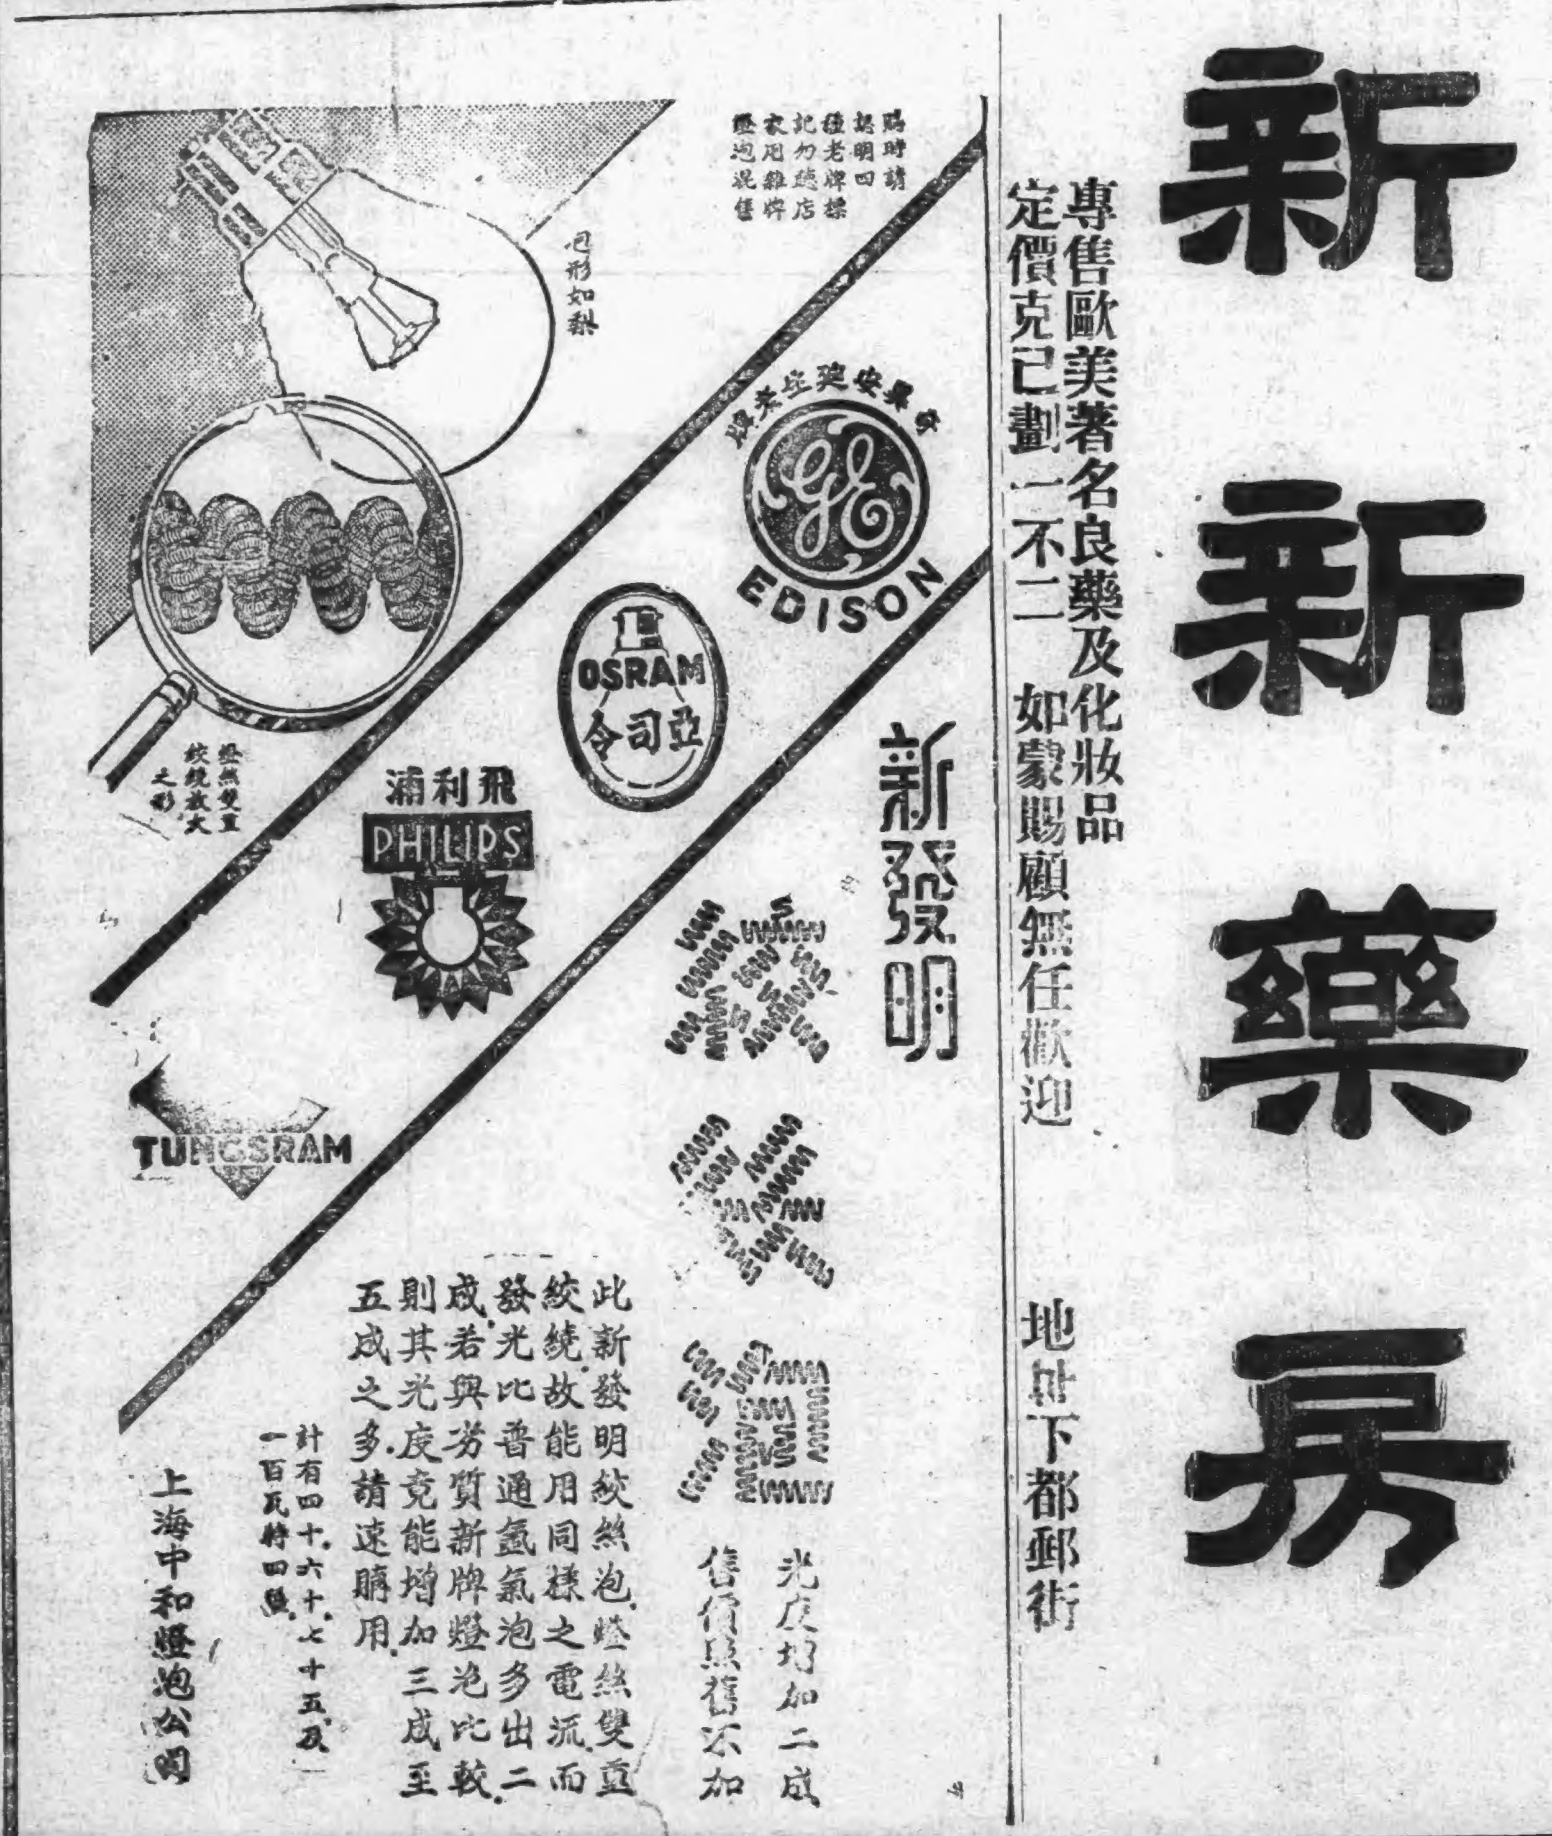 新新藥房
專售歐美著名良藥及化妝品
定價克己劃一不二 如蒙賜顧無任歡迎
地址下都郵街
購時請
認明四
種老牌標
記勿聽店
家用雜牌
燈泡混售
泡形如梨
燈絲雙重
絞繞放大
之形
奇異安迪生老牌
GE
EDISON
OSRAM
亞司令
飛利浦
PHILIPS
TUNGSRAM
新發明
絞絲泡
光度增加二成
售價照舊不加
此新發明絞絲泡.燈絲雙重
絞繞.故能用同樣之電流.而
發光比普通氬氣泡多出二
成.若與劣質新牌燈泡比較.
則其光度竟能增加三成至
五成之多.請速購用.
計有四十.六十.七十五.及
一百瓦特四級.
上海中和燈泡公司